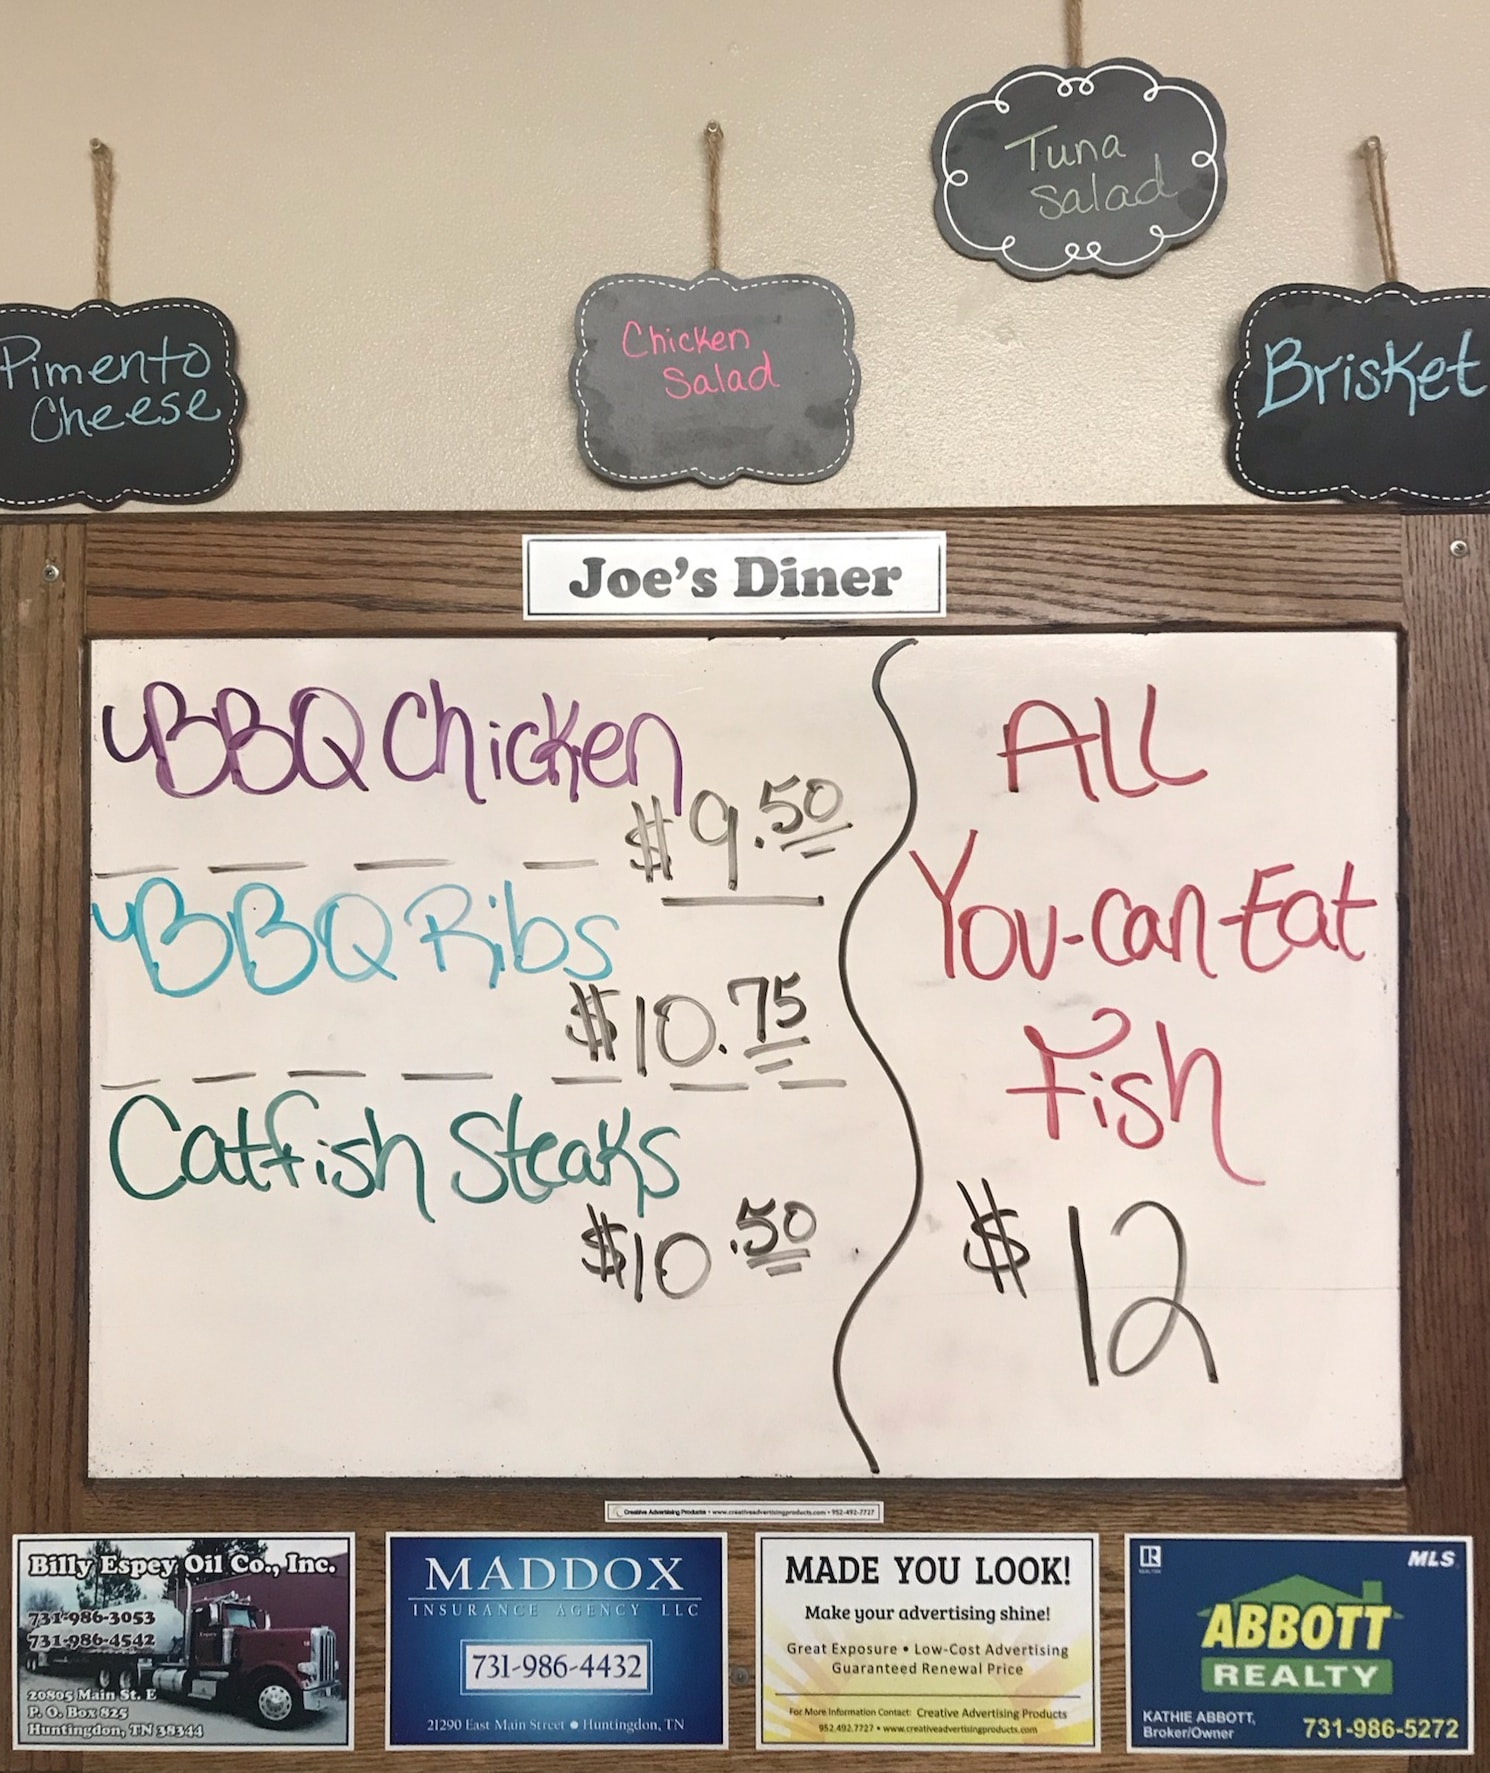 Tuna
Salad
Pimento
Cheese
Chicken
Salad
Brisket
Joe's Diner
BBQ Chicken
$9.50
BBQ Ribs
$10.75
Catfish Steaks
$10.50
ALL
You-Can-Eat
Fish
$12
Creative Advertising Products • www.creativeadvertisingproducts.com • 952-492-7727
Billy Espey Oil Co., Inc.
731-986-3053
731-986-4542
20805 Main St. E
P. O. Box 825
Huntingdon, TN 38344
MADDOX
INSURANCE AGENCY LLC
731-986-4432
21290 East Main Street • Huntingdon, TN
MADE YOU LOOK!
Make your advertising shine!
Great Exposure • Low-Cost Advertising
Guaranteed Renewal Price
For More Information Contact: Creative Advertising Products
952.492.7727 • www.creativeadvertisingproducts.com
R
MLS
ABBOTT
REALTY
KATHIE ABBOTT,
Broker/Owner
731-986-5272